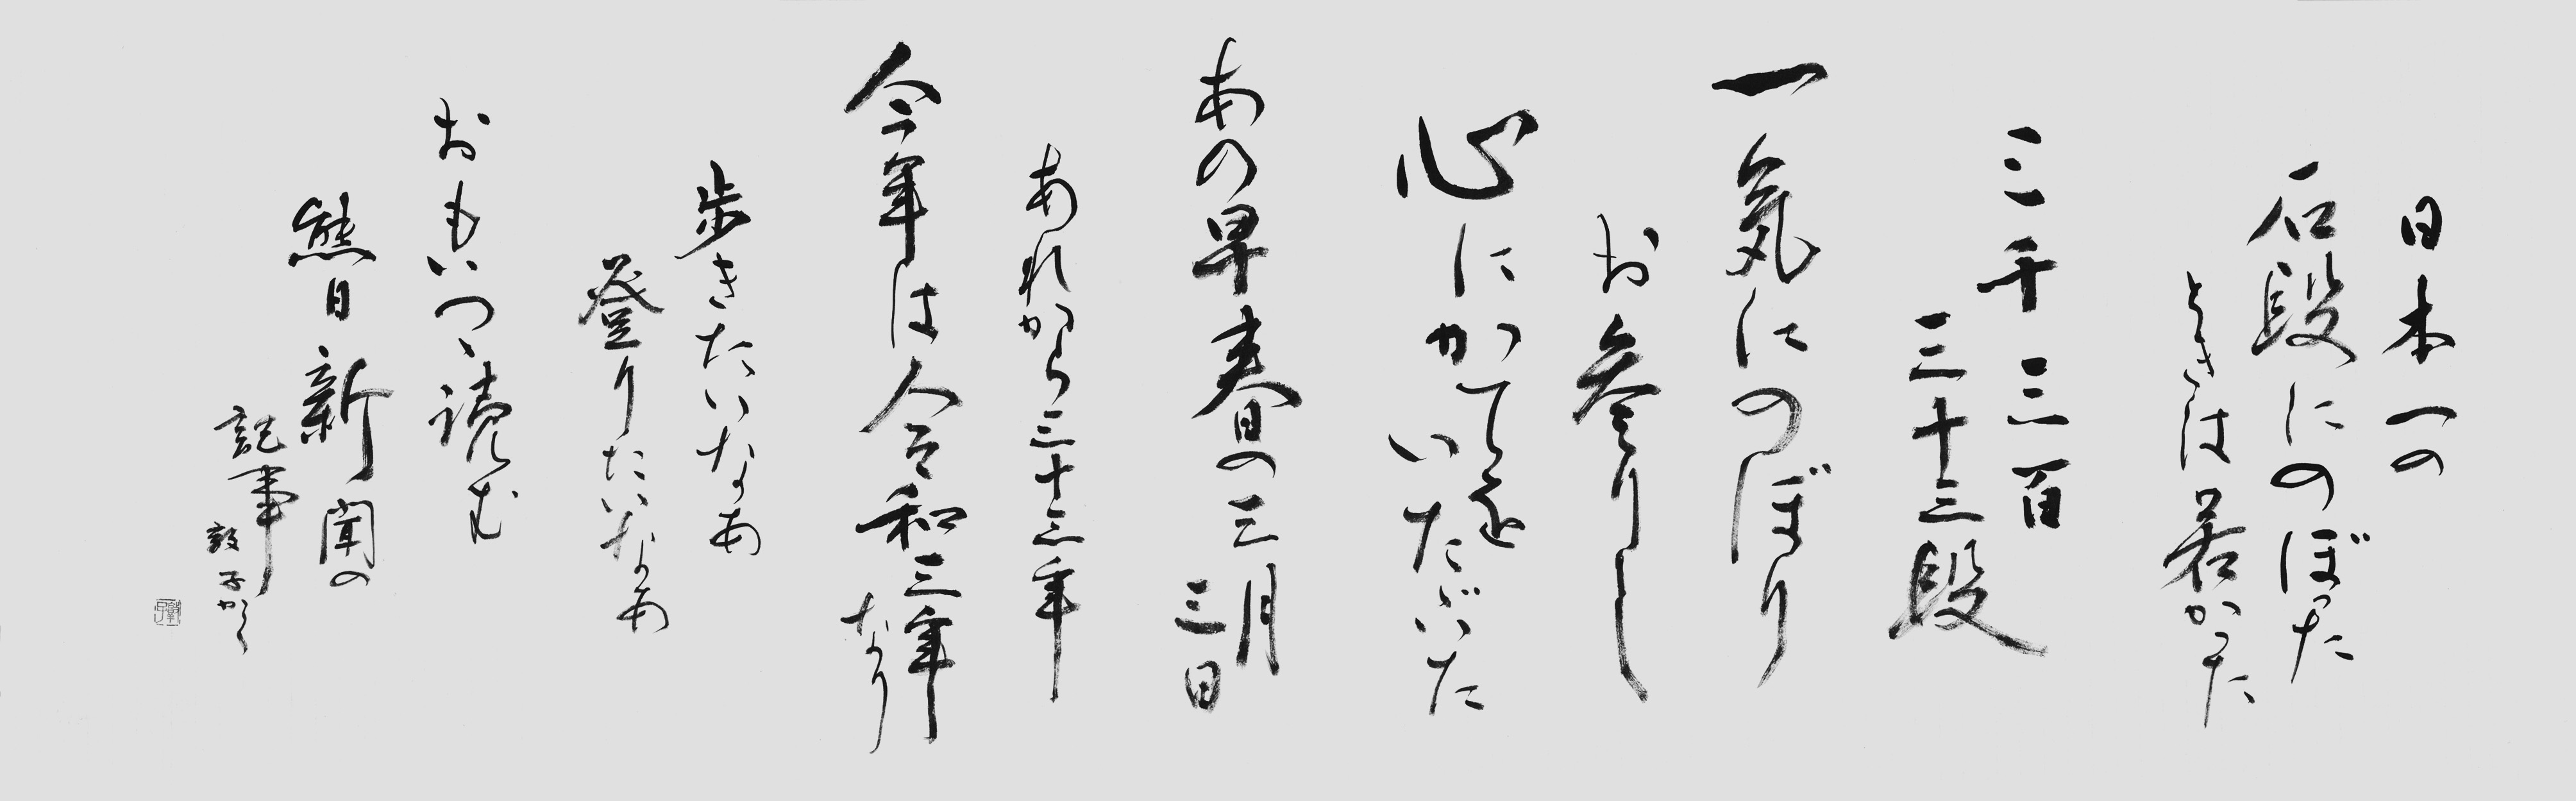 日本一の
石段にのぼった
ときは若かった
三千三百
三十三段
一気にのぼり
お参りし
心にかて
いただいた
あの早春の三月
三日
あれから三十三年
今年は令和三年
なり
歩きたいなあ
登りたいなあ
おもいつゝ読む
熊日新聞の
記事
敦子かく